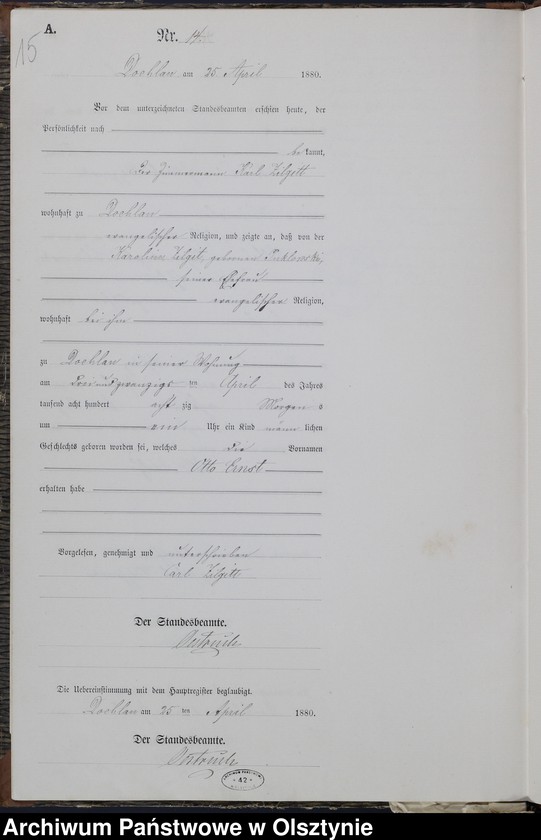 A.
15
Nr. 14
Dochlau am 25. April 1880.
Vor dem unterzeichneten Standesbeamten erschien heute, der
Persönlichkeit nach
bekannt,
der Zimmermann Karl
wohnhaft zu Dochlau
evangelischer Religion, und zeigte an, daß von der
Karoline geborenen
seiner Ehefrau
evangelischer Religion,
wohnhaft bei ihm
zu Dochlau in seiner Wohnung
am ten April des Jahres
tausend acht hundert acht zig Morgens
um ein Uhr ein Kind männlichen
Geschlechts geboren worden sei, welches die Vornamen
Otto Ernst
erhalten habe
Vorgelesen, genehmigt und unterschrieben
Carl
Der Standesbeamte.
Die Uebereinstimmung mit dem Hauptregister beglaubigt.
Dochlau am 25 ten April 1880.
Der Standesbeamte.
42
Archiwum Państwowe w Olsztynie